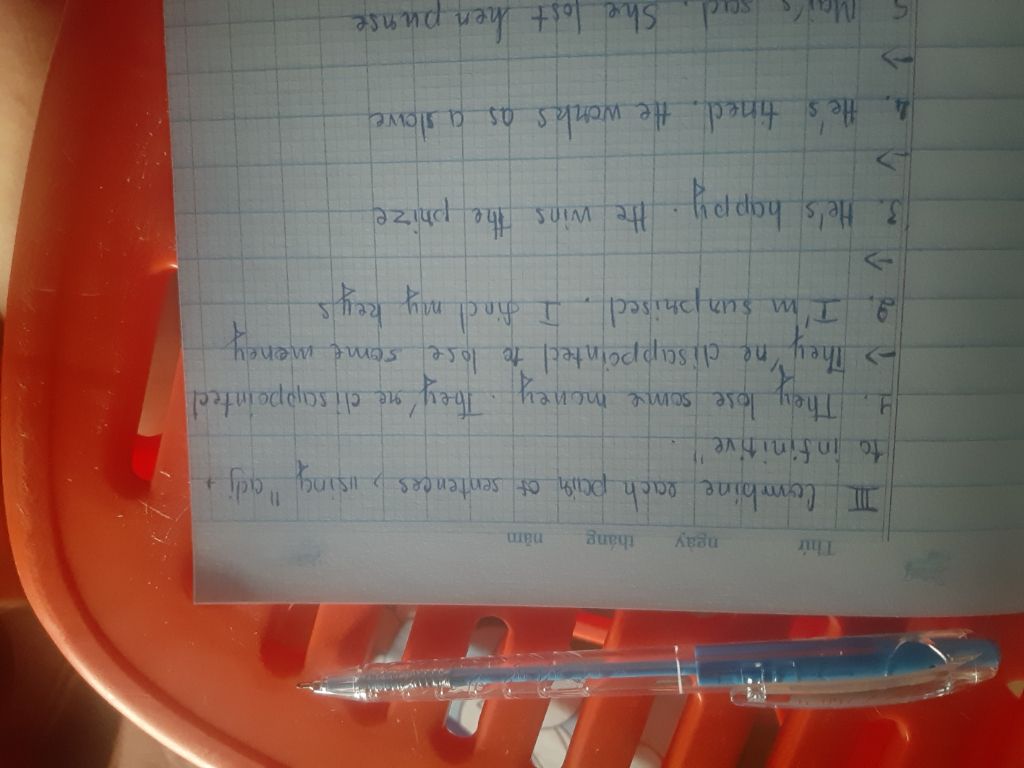 Thứ ngày tháng năm
III Combine each pair of sentences, using "adj +
to infinitive".
1. They lose some money. They're disappointed
→ They're disappointed to lose some money
2. I'm surprised. I find my keys
→
3. He's happy. He wins the prize
→
4. He's tired. He works as a slave
→
5 Mai's sad. She lost her purse